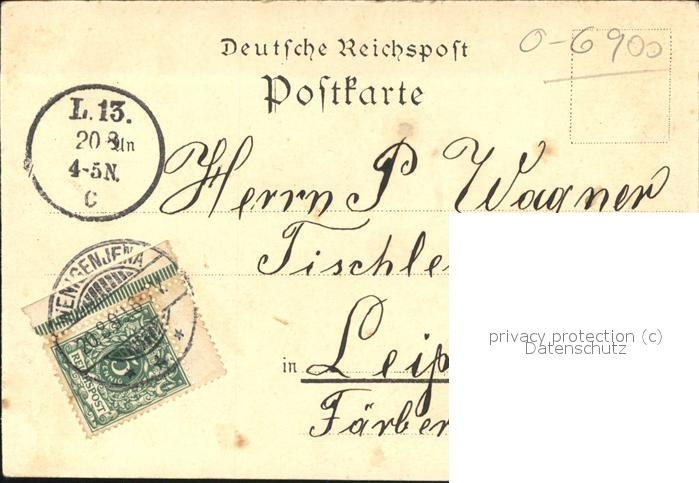 Deutsche Reichspost
Postkarte
0-6900
L. 13.
20 8
4-5N.
C
Herrn P Wagner
Tischle
WENIGENJENA
20.8.91.
REICHSPOST
5
in Leip
Färber
privacy protection (c)
Datenschutz